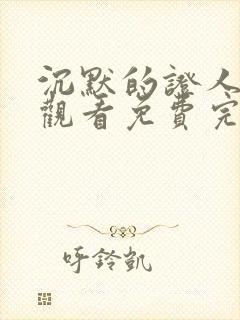 沉默的證人
觀看免費完
呼鈴凱